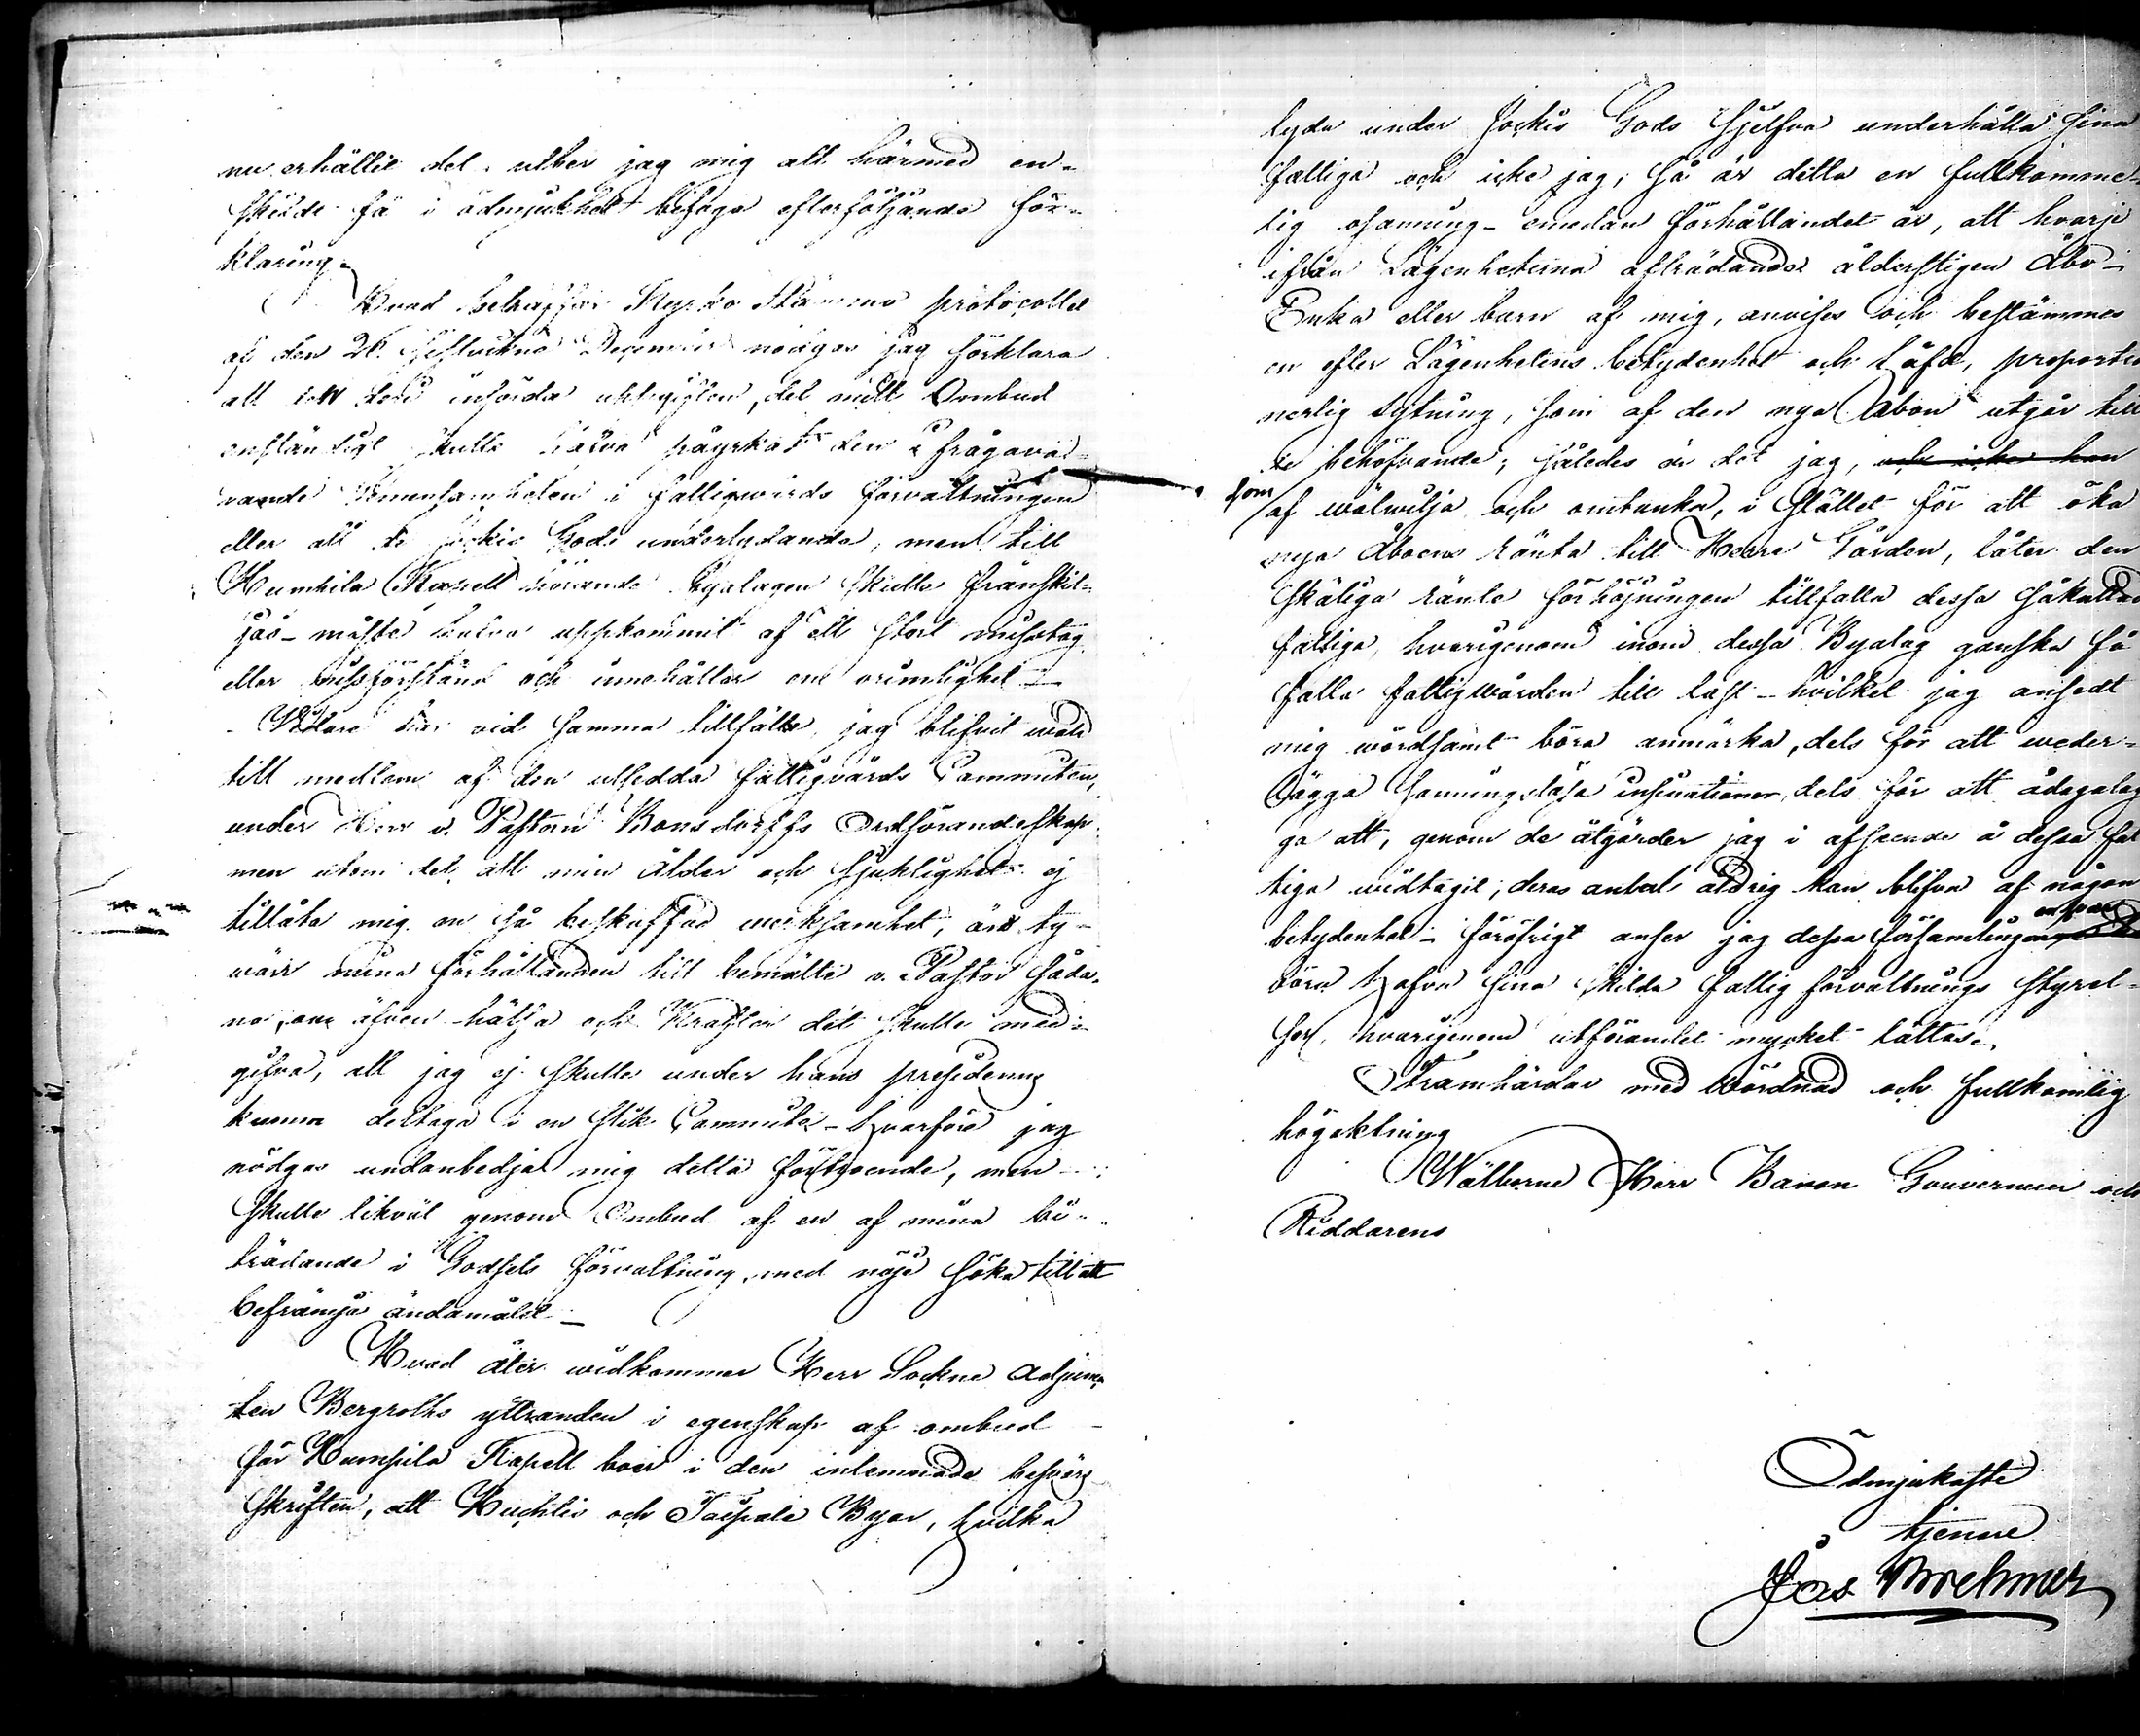 nu erhållit del, utber jag mig att härmed en-
skildt få i ödmjukhet bifoga efterföljande för-
klaring.
Hvad beträffar Kyrko Stämmo protocollet
af den 26. sistvikne December nödgas jag förklara
att den införda uppgiften, det mitt Ombud
enständigt skulle hafva påyrkat den i frågava-
rande Gemensamheten i fattigvårds förvaltningen
eller att de Jockis Gods underlydande, men till
Humpila Kapell hörande byalagen skulle fránskil-
jas - måste hafva uppkommit af ett stort misstag
eller missförstånd och innehåller en orimlighet -
- Vidare har vid samma tillfälle, jag blifvit vald
till medlem af den utsedda fattigvårds Committen,
under Herr v. Pastorn Bonsdorffs Ordförandeskap
men utom det, att min ålder och sjuklighet ej
tillåta mig en så beskaffad verksamhet, äro ty-
värr mina förhållanden till bemälte v. Pastor såda-
na, om äfven hälsa och Krafter det skulle med-
gifva, att jag ej skulle under hans presidering
kunna deltaga i en slik Committé - hvarföre jag
nödgas undanbedja mig detta förtroende, men
skulle likväl genom Ombud af en af mina bi-
trädande i Godsets förvaltning, med nöje söka till att
befrämja ändamålet -
Hvad åter vidkommer Herr Sockne Adjunc-
ten Bergroths yttranden i egenskap af ombud
för Humpila Kapell boer i den inlemnade besvärs
skriften, att Huchtis och Taipale Byar, hvilka
lyda under Jockis Gods sjelfva underhålla sina
fattiga och icke jag, så är detta en fullkomme-
lig osanning - emedan förhållandet är, att hvarje
ifrån Lägenheterna afträdandes ålderstigen Åbo-
Enka eller barn af mig, anvises och bestämmes
en efter Lägenhetens betydenhet och häfd, proportio
nerlig sytning, som af den nya Åbon utgår till
de behöfvande; således är det jag, och icke han
som
af välvilja och omtanka, i stället för att öka
nya Åboens ränta till Herre Gården, låter den
skäliga ränte förhöjningen tillfalla dessa såkallade
fattiga, hvarigenom inom dessa Byalag ganska få
falla fattigvården till last - hvilket jag ansedt
mig vördsamt böra anmärka, dels för att veder-
lägga sanningslösa insinuationer, dels för att ådagaläg
ga att, genom de åtgärder jag i afseende å dessa fat
tiga vidtagit, deras antal aldrig kan blifva af någon
betydenhet - för öfrigt anser jag dessa församlingar
böra hafva sina skilda fattig förvaltnings styrel-
ser, hvarigenom utförandet mycket lättas.
Framhärdar med vördnad och fullkomlig
högaktning
Wälborne Herr Baron Gouverneur och
Riddarens
Ödmjukaste
tjenare
Jos Bremer